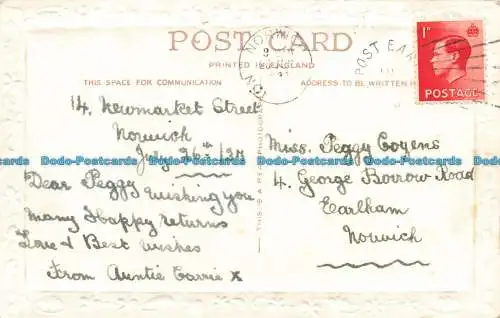 POST CARD
PRINTED IN ENGLAND
THIS SPACE FOR COMMUNICATION
ADDRESS TO BE WRITTEN H
NORWI
POST EAR
1D
POSTAGE
14, Newmarket Street
Norwich
July 26th/37
Dear Peggy
Wishing you
Many Happy returns
Love & Best wishes
From Auntie Carrie x
THIS IS A REAL PHOTOGRAPH
Miss. Peggy Cogens
4. George Borrow Road
Earlham
Norwich
Dodo-Postcards Dodo-Postcards Dodo-Postcards Dodo-Postcards